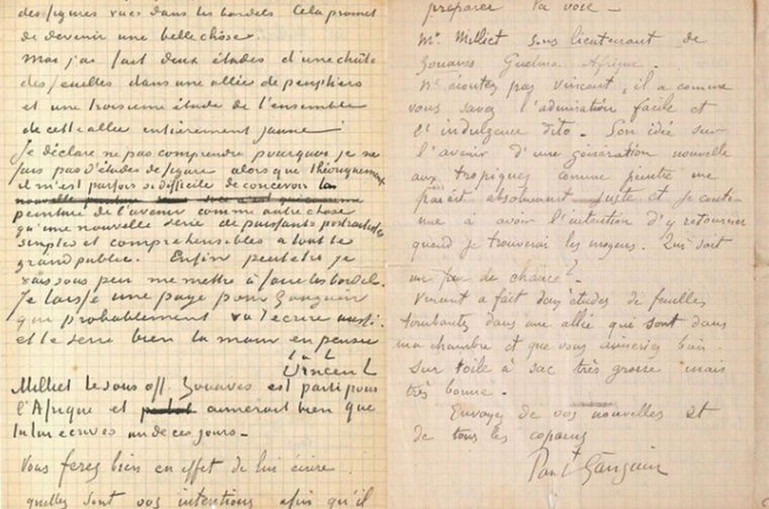 des figures vues dans les bordels Cela promet
de devenir une belle chose.
Moi j'ai fait deux études d'une chûte
des feuilles dans une allée de peupliers
et une troisieme étude de l'ensemble
de cette allée entièrement jaune!
Je déclare ne pas comprendre pourquoi je ne
fais pas d'études de figure alors que théoriquement
il m'est parfois si difficile de concevoir la
nouvelle peinture
peinture de l'avenir comme autre chose
qu'une nouvelle serie de puissants portraitistes
simples et comprehensibles a tout le
grand public. Enfin peutetre je
vais sous peu me mettre à faire les bordels.
Je laisse une page pour Gauguin
qui probablement va t'ecrire aussi.
et te serre bien la main en pensée
t. à t.
Vincent
Milliet le sous off. Zouaves est parti pour
l'Afrique et aimerait bien que
tu lui ecrives un de ces jours.-
Vous ferez bien en effet de lui écrire
quelles sont vos intentions afin qu'il
prepare la voie -
Mr. Milliet sous lieutenant de
Zouaves Guelma Afrique.
N'écoutez pas Vincent, il a comme
vous savez l'admiration facile et
l'indulgence dito. - Son idée sur
l'avenir d'une génération nouvelle
aux tropiques comme peintre me
parait absolument juste et je conti-
nue à avoir l'intention d'y retourner
quand je trouverai les moyens. Qui sait
un peu de chance?
Vincent a fait deux études de feuilles
tombantes dans une allée qui sont dans
ma chambre et que vous aimeriez bien.
Sur toile à sac très grosse mais
très bonne.
Envoyez de vos nouvelles et
de tous les copains
Paul Gauguin